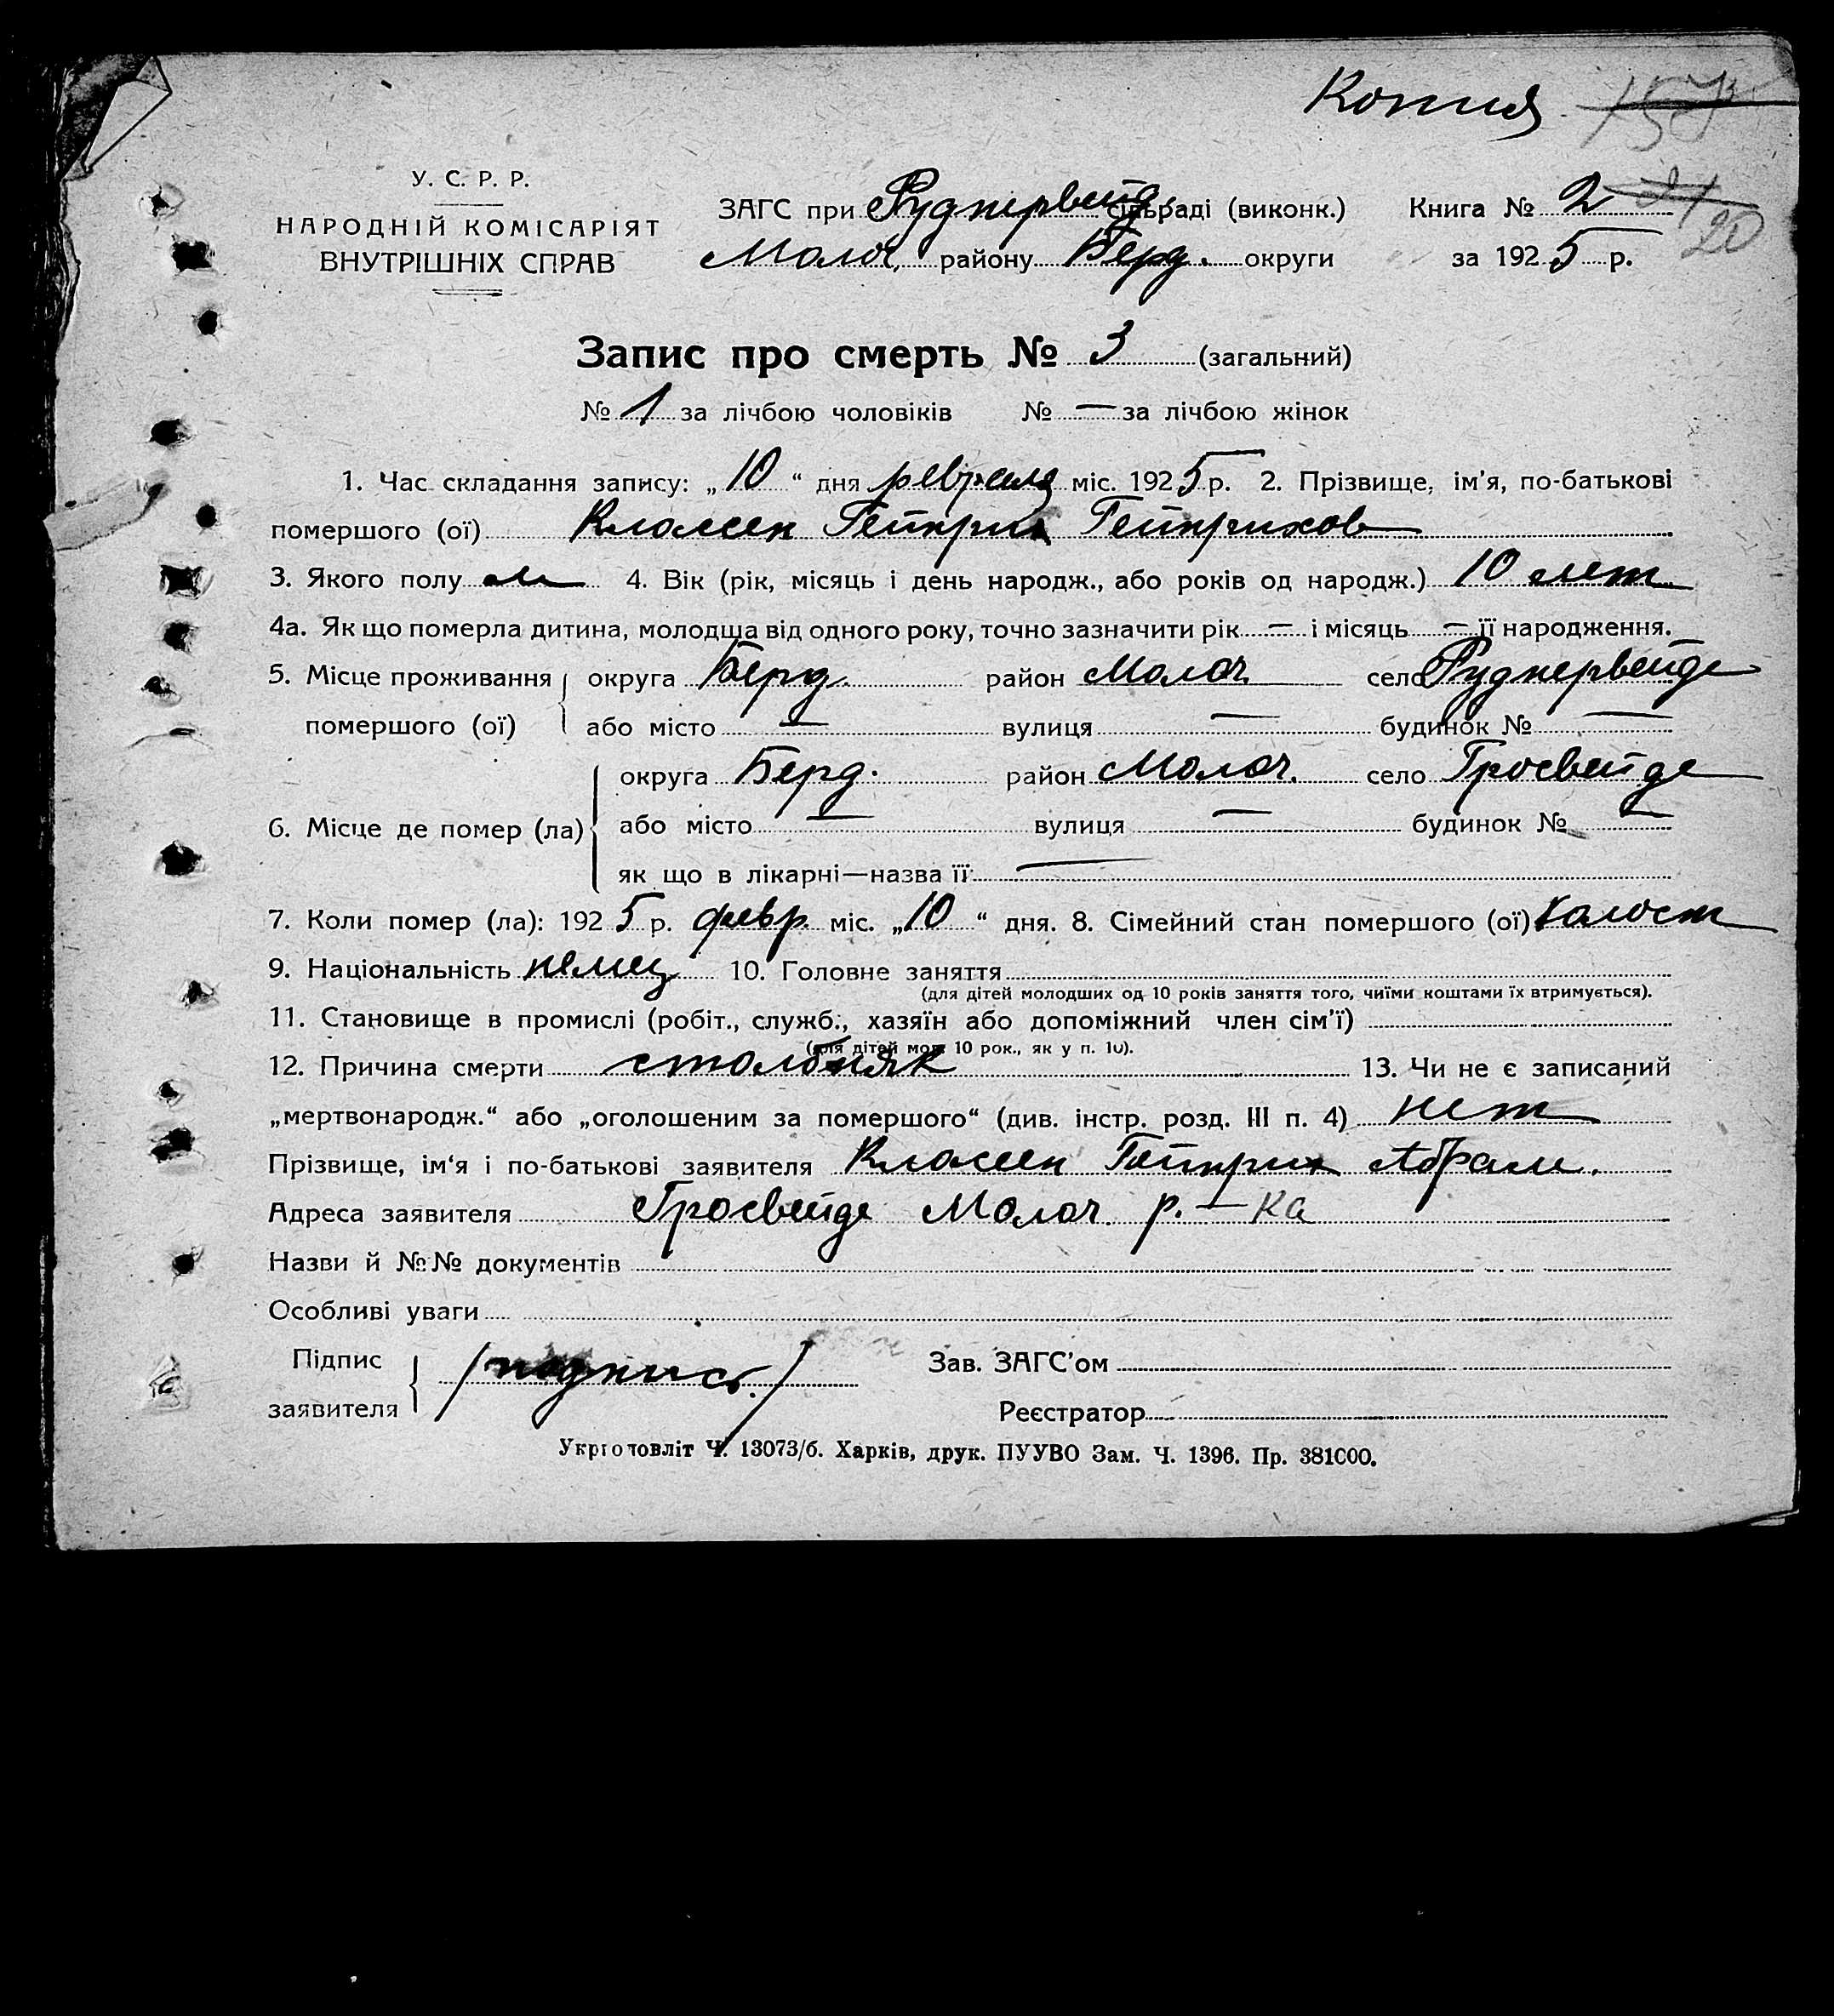 Копия
У. С. Р. Р.
НАРОДНІЙ КОМІСАРІЯТ
ВНУТРІШНІХ СПРАВ
ЗАГС при Руднервейд. сільраді (виконк.) Книга № 2
Молоч. району Берд. округи за 1925 р.
20
Запис про смерть № 3 (загальний)
№ 1 за лічбою чоловіків № — за лічбою жінок
1. Час складання запису: „10“ дня февраля міс. 1925 р. 2. Прізвище, ім'я, по-батькові
помершого (ої) Классен Гейнрих Гейнрихов
3. Якого полу м 4. Вік (рік, місяць і день народж., або років од народж.) 10 лет
4а. Як що померла дитина, молодша від одного року, точно зазначити рік — і місяць — її народження.
5. Місце проживання округа Берд. район Молоч село Руднервейде
помершого (ої) або місто — вулиця — будинок № —
округа Берд. район Молоч. село Гросвейде
6. Місце де помер (ла) або місто — вулиця — будинок № —
як що в лікарні—назва її —
7. Коли помер (ла): 1925 р. февр. міс. „10“ дня. 8. Сімейний стан помершого (ої) холост
9. Національність немец 10. Головне заняття
(для дітей молодших од 10 років заняття того, чиїми коштами їх втримується).
11. Становище в промислі (робіт., служб., хазяїн або допоміжний член сім'ї)
(для дітей мол. 10 рок., як у п. 10).
12. Причина смерти столбняк 13. Чи не є записаний
„мертвонародж.“ або „оголошеним за помершого“ (див. інстр. розд. III п. 4) нет
Прізвище, ім'я і по-батькові заявителя Классен Гейнрих Абрам.
Адреса заявителя Гросвейде Молоч. р.—ка
Назви й №№ документів
Особливі уваги
Підпис /подпись/ Зав. ЗАГС'ом
заявителя Реєстратор
Укрголовліт Ч. 13073/б. Харків, друк. ПУУВО Зам. Ч. 1396. Пр. 381000.